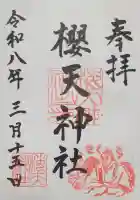 奉拝
櫻天神社
令和八年三月十五日